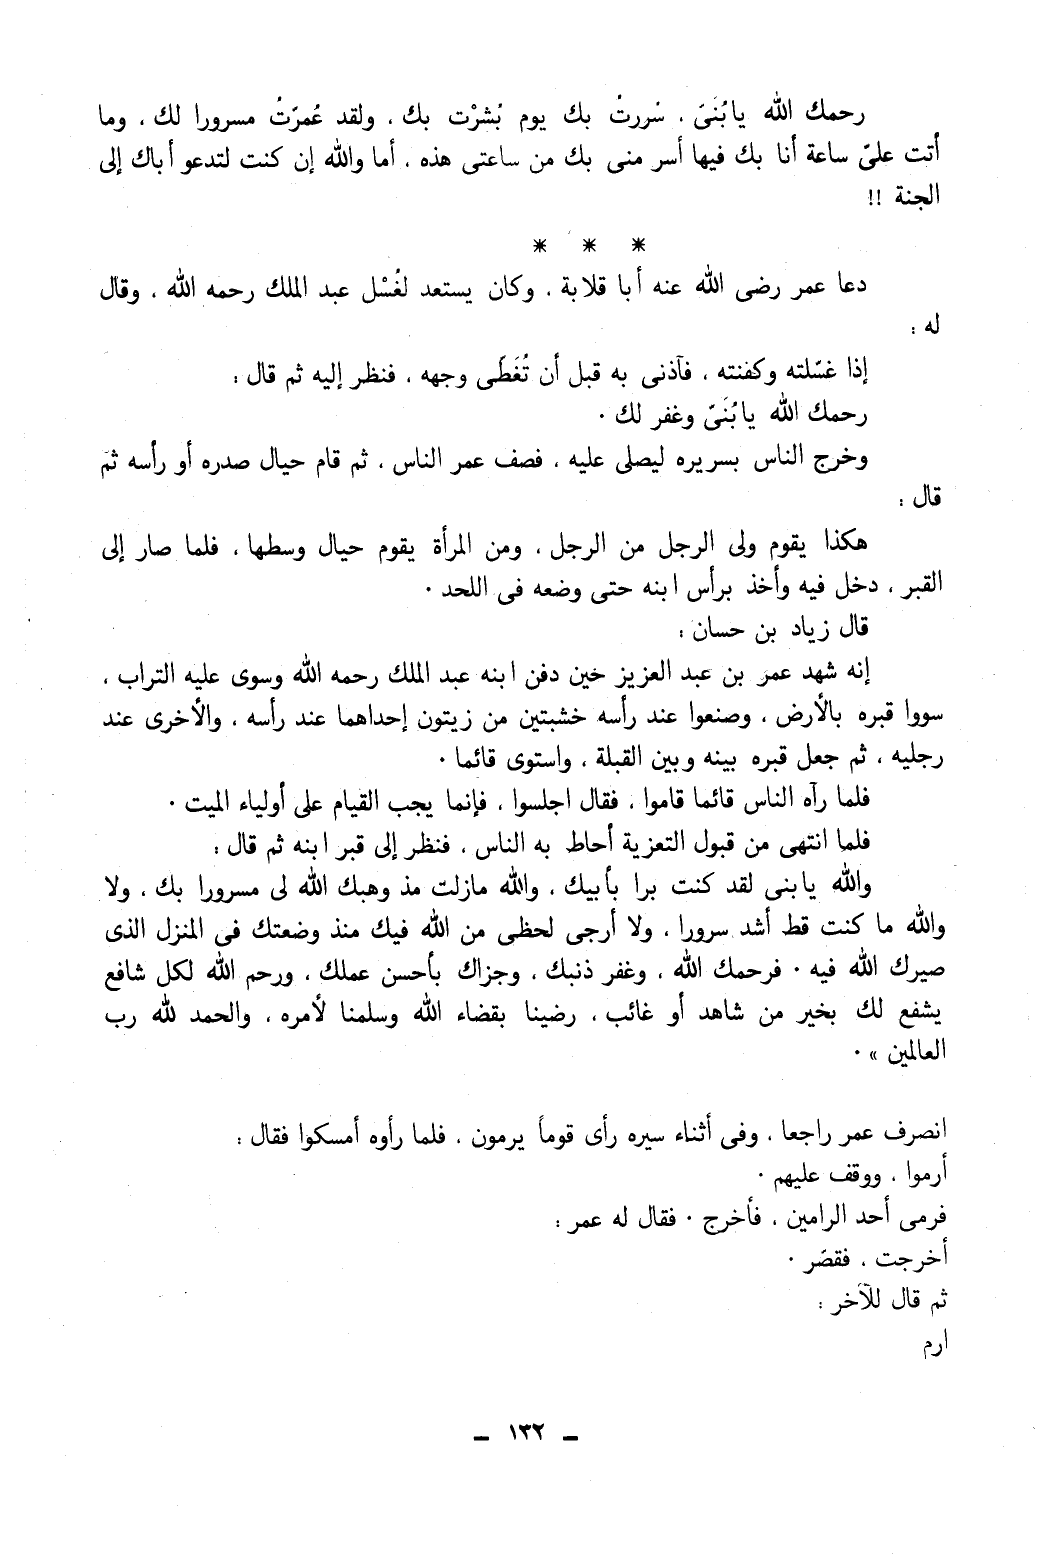 رحمك الله يا بُنَىّ ، سُررتُ بك يوم بُشرْت بك ، ولقد عُمرّتُ مسرورا لك ، وما
أتت علىّ ساعة أنا بك فيها أسر منى بك من ساعتى هذه ، أما والله إن كنت لتدعو أباك إلى
الجنة !!
* * *
دعا عمر رضى الله عنه أبا قلابة ، وكان يستعد لغُسْل عبد الملك رحمه الله ، وقال
له :
إذا غسّلته وكفنته ، فآذنى به قبل أن تُغَطَى وجهه ، فنظر إليه ثم قال :
رحمك الله يا بُنَىّ وغفر لك ٠
وخرج الناس بسريره ليصلى عليه ، فصف عمر الناس ، ثم قام حيال صدره أو رأسه ثم
قال :
هكذا يقوم ولى الرجل من الرجل ، ومن المرأة يقوم حيال وسطها ، فلما صار إلى
القبر ، دخل فيه وأخذ برأس ابنه حتى وضعه فى اللحد ٠
قال زياد بن حسان :
إنه شهد عمر بن عبد العزيز حين دفن ابنه عبد الملك رحمه الله وسوى عليه التراب ،
سووا قبره بالأرض ، وصنعوا عند رأسه خشبتين من زيتون إحداهما عند رأسه ، والأخرى عند
رجليه ، ثم جعل قبره بينه وبين القبلة ، واستوى قائما ٠
فلما رآه الناس قائما قاموا ، فقال اجلسوا ، فإنما يجب القيام على أولياء الميت ٠
فلما انتهى من قبول التعزية أحاط به الناس ، فنظر إلى قبر ابنه ثم قال :
والله يا بنى لقد كنت برا بأبيك ، والله مازلت مذ وهبك الله لى مسرورا بك ، ولا
والله ما كنت قط أشد سرورا ، ولا أرجى لحظى من الله فيك منذ وضعتك فى المنزل الذى
صيرك الله فيه ٠ فرحمك الله ، وغفر ذنبك ، وجزاك بأحسن عملك ، ورحم الله لكل شافع
يشفع لك بخير من شاهد أو غائب ، رضينا بقضاء الله وسلمنا لأمره ، والحمد لله رب
العالمين » ٠
انصرف عمر راجعا ، وفى أثناء سيره رأى قوماً يرمون ، فلما رأوه أمسكوا فقال :
أرموا ، ووقف عليهم ٠
فرمى أحد الرامين ، فأخرج ٠ فقال له عمر :
أخرجت ، فقصّر ٠
ثم قال للآخر :
ارم
– ١٣٢ –